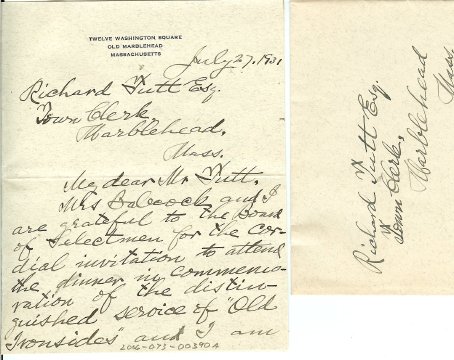 TWELVE WASHINGTON SQUARE
OLD MARBLEHEAD
MASSACHUSETTS
July 27, 1931
Richard Tutt Esq.
Town Clerk,
Marblehead,
Mass.
My dear Mr Tutt,
Mrs Babcock and I
are grateful to the Board
of Selectmen for the cor-
dial invitation to attend
the dinner in commemo-
ration of the distin-
guished service of "Old
Ironsides" and I am
2016-073-00390A
Richard Tutt Esq.
Town Clerk,
Marblehead
Mass.